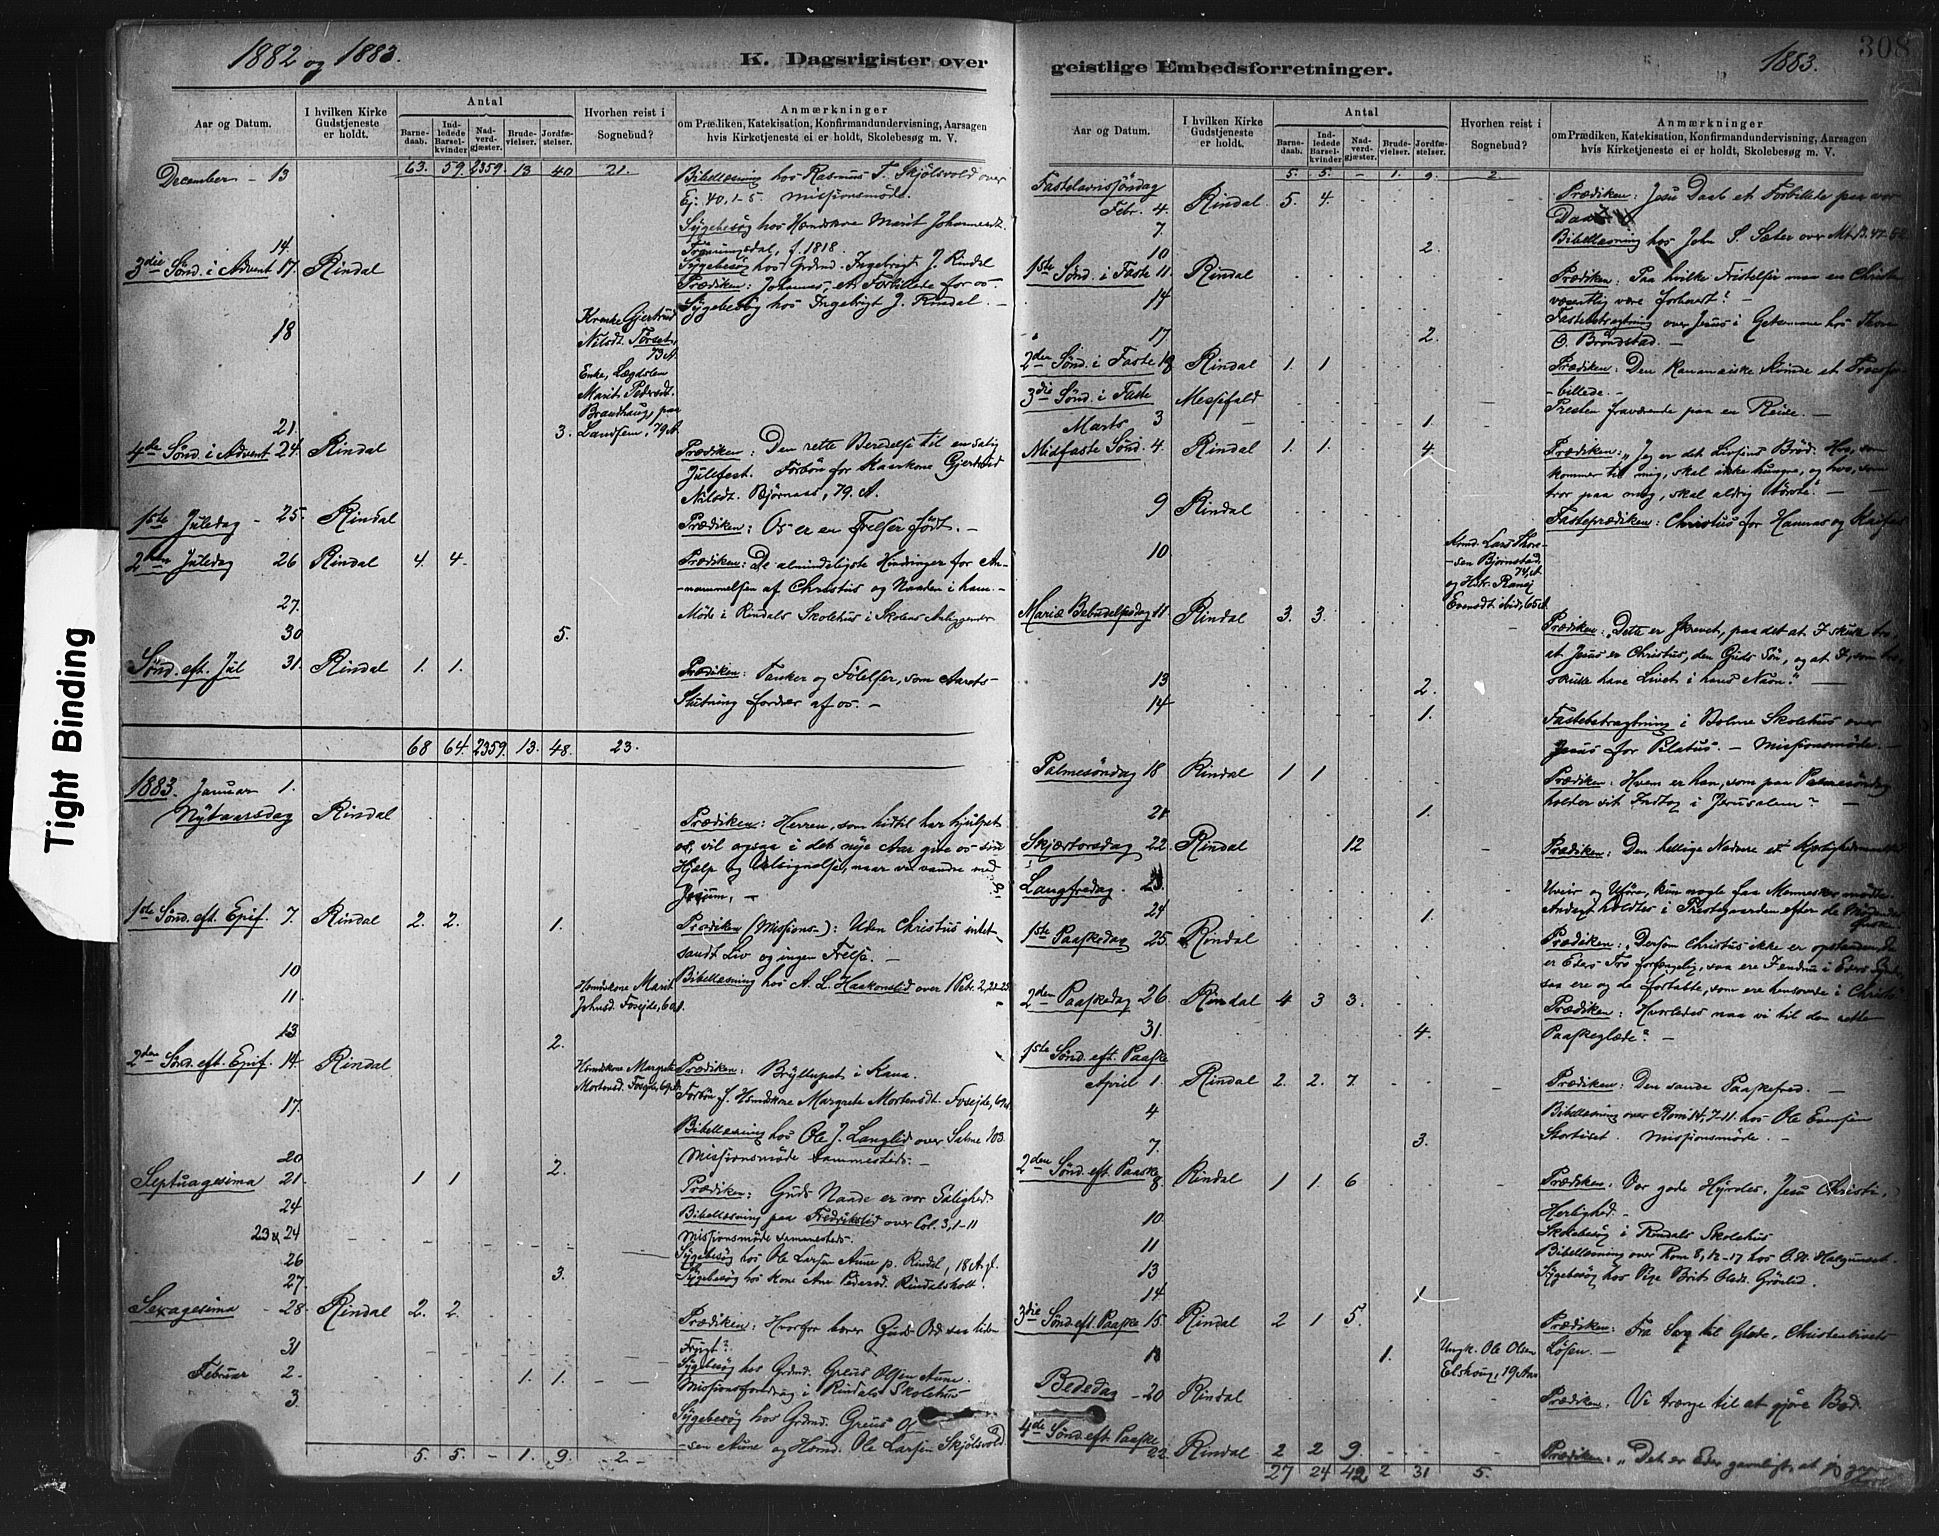 1882 og 1883.
K. Dagsrigister over
Aar og Datum.
I hvilken Kirke Gudstjeneste er holdt.
Antal
Barnedaab.
Indledede Barselkvinder
Nadverdgjæster.
Brudevielser.
Jordfæstelser.
Hvorhen reist i Sognebud?
Anmærkninger
om Prædiken, Katekisation, Konfirmandundervisning, Aarsagen
hvis Kirketjeneste ei er holdt, Skolebesøg m. V.
63. 59. 2359. 13 40 21.
December - 13 Bibellæsning hos Rasmus T. Skjølsvold over
Ej. 40, 1-5. Missionsmøde.
Sygebesøg hos Hsmdskone Marit Johannesdt.
14. f. 1818.
3die Sønd. i Advent 17. Rindal Sygebesøg hos Grdmd. Ingebrigt J. Rindal
Prædiken: Johannes, et Forbillede for os -
Sygebesøg hos Ingebrigt J. Rindal. -
18 Gjertrud
Nilsdt. Forset,
73 A.
Enke, Lægdslem
Marit Pedersdt.
Brandhaug, paa
21. 3. Landsem, 79 A.
4de Sønd. i Advent 24. Rindal Prædiken: Den rette Beredelse til en salig
Julefest. Forbøn for Kaarkone Gjertrud
Nilsdt. Bjørnaas, 79. A.
1ste Juledag - 25. Rindal Prædiken: Os er en Frelser født. -
2den Juledag 26 Rindal 4. 4. Prædiken: De almindeligste Hindringer for An-
-nammelsen af Christus og Naaden i ham. -
27. Møde i Rindals Skolehus i Skolens Anliggender
30 5.
Sønd. eft. Jul 31. Rindal 1. 1. Prædiken: Tanker og Følelser, som Aarets
Slutning fordrer af os. -
68 64. 2359. 13. 48. 23.
1883. Januar 1.
Nytaarsdag Rindal Prædiken: Herren, som hidtil har hjulpet
os, vil ogsaa i det nye Aar give os sin
Hjælp og Velsignelse, naar vi vandre med
Jesum. -
1ste Sønd. eft. Epif. 7. Rindal 2. 2. 1. Prædiken (Missions-): Uden Christus intet
sandt Liv og ingen Frelse. -
10 Bibellæsning hos A. L. Haakonslid over 1 Petr. 2, 21-25
11. Hsmdskone Marit
Johnsd. Forejde,
13 2.
2den Sønd. eft. Epif. 14. Rindal Hsmdskone Margrete Mortensd. Prædiken: Bryllupet i Kana.
Forbøn f. Hsmdskone Margrete Mortensdt.
17. Bibellæsning hos Ole J. Langlid over Salme 103.
Missionsmøde sammesteds. -
20 2.
Septuagesima 21. 1 1 Prædiken: Guds Naade er vor Salighed.
24 Bibellæsning paa Fredrikslid over Col. 3, 1-11
23 & 24 Missionsmøde sammesteds.
26 Sygebesøg hos Ole Larsen Aune p. Rindal, 18 A. gl.
27. 3. Sygebesøg hos Kone Ane Pedersd. Rindalsholt.
Sexagesima - 28. Rindal 2. 2. Prædiken: Hvorfor bærer Guds Ord saa liden
Frugt?
31 Sygebesøg hos Grdmd. Greus Olsen Aune.
Februar 2. 1. 1. Missionsforedrag i Rindals Skolehus
3. Sygebesøg hos Grdmd. Greus Ol-
-sen Aune og Hsmd. Ole Larsen Skjølsvold
5. 5. - 1. 9. 2.
geistlige Embedsforretninger.
1883.
308
Aar og Datum.
I hvilken Kirke Gudstjeneste er holdt.
Antal
Barnedaab.
Indledede Barselkvinder
Nadverdgjæster.
Brudevielser.
Jordfæstelser.
Hvorhen reist i Sognebud?
Anmærkninger
om Prædiken, Katekisation, Konfirmandundervisning, Aarsagen
hvis Kirketjeneste ei er holdt, Skolebesøg m. V.
5. 5. - 1. 9. 2
Fastelavnssøndag
Febr. 4. Rindal 5. 4. Prædiken: Jesu Daab et Forbillede paa vor
Daab
7 Bibellæsning hos John S. Sæter over Mt. 13,
10 2.
1ste Sønd. i Faste 11. Rindal Prædiken: Paa hvilke Fristelser maa en Christen
væsentlig være forberedt? -
14 Fastebetragtning over Jesus i Getsemane hos Thore
17. 2. O. Brøndstad. -
2den Sønd. i Faste 18 Rindal 1. 1 Prædiken: Den Kananæiske Kvinde et Troesfor-
-billede. -
3die Sønd. i Faste Messefald Presten fraværende paa en Reise. -
Marts 3 1.
Midfaste Sønd. 4. Rindal 1. 1. 4. Prædiken: "Jeg er det Livsens Brød. Hvo, som
kommer til mig, skal ikke hungre, og hvo, som
tror paa mig, skal aldrig tørste." -
9 Rindal Fasteprædiken: Christus for Hannas og Kaifas
10 Lars Thore-
-sen Bjørnstad,
74 A.
og Hstr. Ranej
Evensdt ibid, 65 A.
Mariæ Bebudelsesdag 11 Rindal 3. 3. Prædiken: "Dette er skrevet, paa det at I skulle tro,
at Jesus er Christus, den Guds Søn, og at I, som tro,
13 2. skulle have Livet i hans Navn." -
14. 1. Fastebetragtning i Bolme Skolehus over
Jesus for Pilatus. - Missionsmøde. -
Palmesøndag 18 Rindal 1 1 Prædiken: Hvem er han, som paa Palmesøndag
holder sit Indtog i Jerusalem? -
1.
Skjærtorsdag 22. Rindal 12 Prædiken: Den hellige Nadvere et
Langfredag. 23. Uveir og Uføre, kun nogle faa Mennesker mødte.
24 1. Andagt holdtes i Prestegaarden efter de Mødendes
Ønske.
1ste Paaskedag 25. Rindal Prædiken: "Dersom Christus ikke er opstanden, da
er Eders Tro forfængelig, saa ere I endnu i Eders Synder,
saa ere og de fortabte, som ere hensovede i Christo"
2den Paaskedag 26. Rindal 4 3 3. Prædiken: Hvorledes naa vi til den rette
31. 4. Paaskeglæde?
1ste Sønd. eft. Paaske
April 1. Rindal 2. 2. 7. Prædiken: Den sande Paaskefred. -
4 Bibellæsning over Rom. 14, 7-11. hos Ole Evensen
7. 3. Stortuset. Missionsmøde. -
2den Sønd. eft. Paaske 8. Rindal 1 1 6 Prædiken: Vor gode Hyrdes, Jesu Christi,
Herlighed. -
10 Skolebesøg i Rindals Skolehus
11 Bibellæsning over Rom 8, 12-17 hos O. H. Halgunset.
13 Sygebesøg hos Pige Brit Olsdt. Grønlid.
14 1
3die Sønd. eft. Paaske 15. Rindal 2 1 5. Prædiken: Fra Sorg til Glæde, Christenlivets
Løsen. -
18 1. Ungk. Ole Olsen
Elshoug, 19 Aar
Bededag - 20 Rindal Prædiken. Vi trænge til at gjøre Bod.
4de Sønd. eft. Paaske
22. Rindal 2 2 9. Prædiken: "Det er Eder gavnligt, at jeg gaar
27 24 42 2 31 5.
Tight Binding